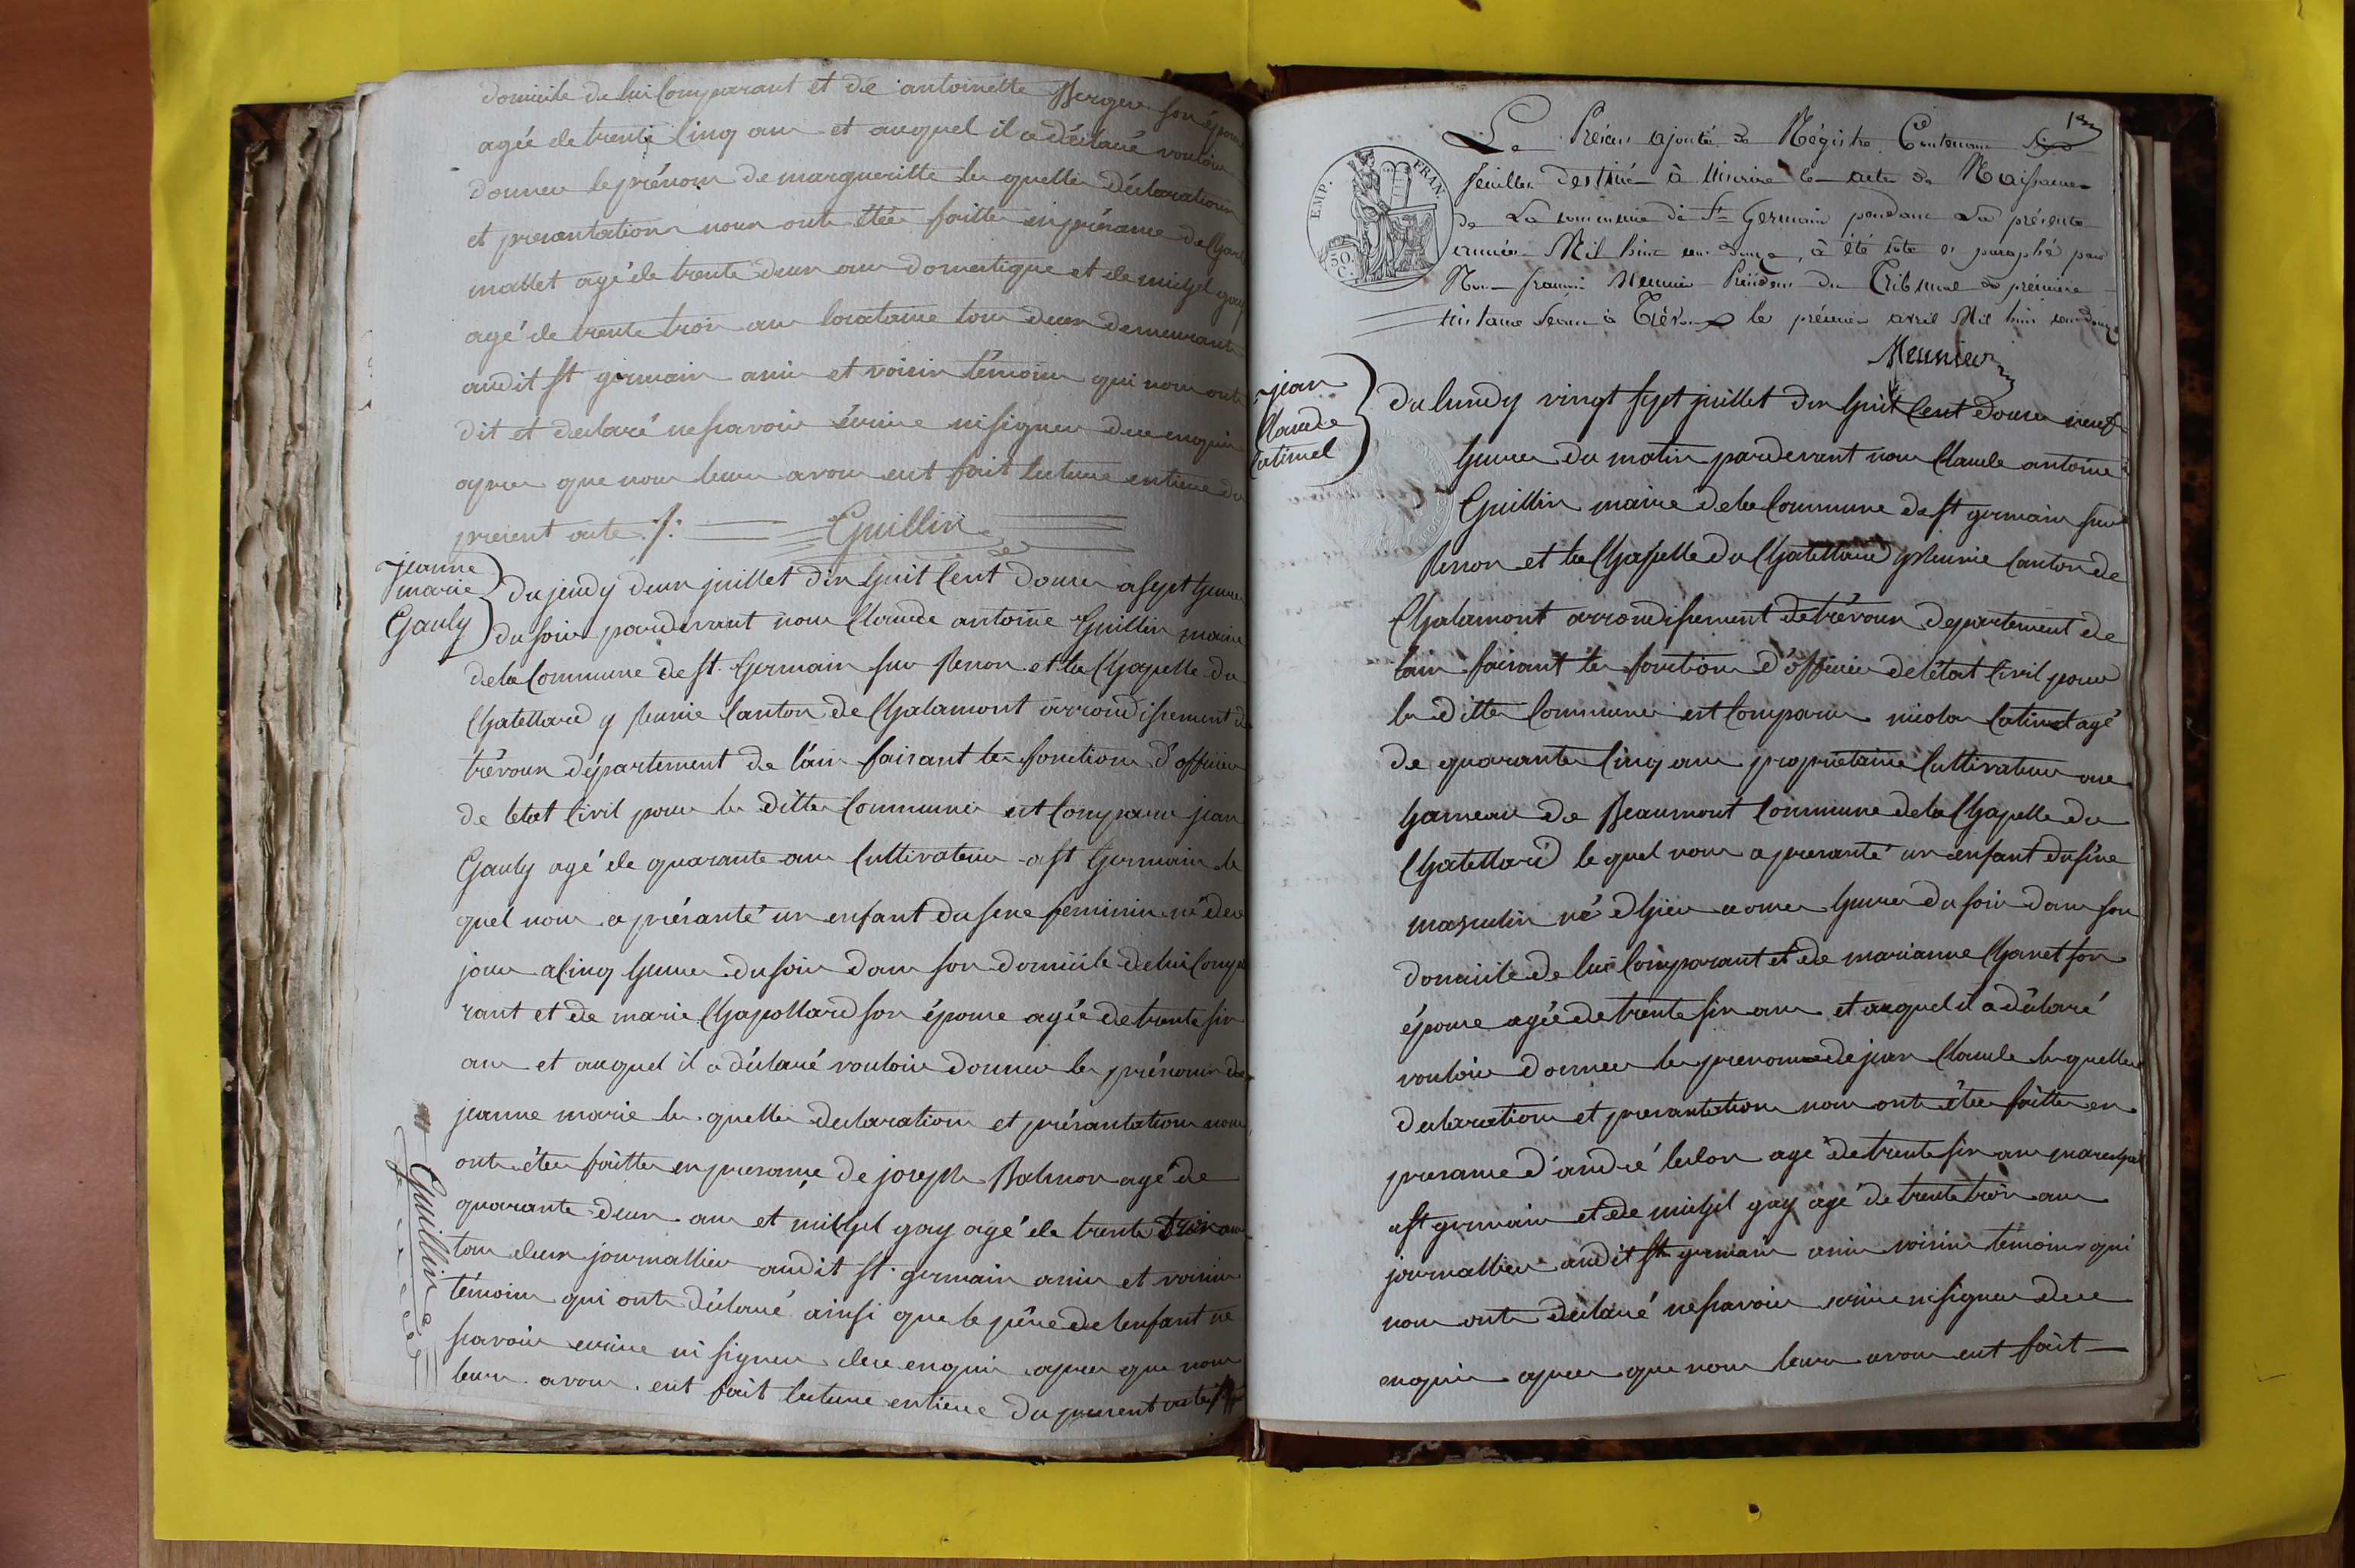 domicile de lui Comparant et de antoinette Berger son épouse
agée de trente Cinq ans et auquel il a déclaré vouloir
donner le prénom de margueritte les quelles déclarations
et presantations nous ont étées faittes en présance de
mallet agé de trente deux ans domestique et de michel gay
agé de trente trois ans locataire tous deux demeurants
audit st germain amis et voisins témoins qui nous ont
dit et déclaré ne scavoir écrire ni signer de ce enquis
apres que nous leurs avons eut fait lecture entiere du
present acte ./. Guillin
jeanne
marie
Gauly
du jeudy deux juillet dix huit Cent douze a sept heures
du soir pardevant nous Claude antoine Guillin maire
de la Commune de st. Germain sur Renon et la Chapelle du
Chatellard y reunie Canton de Chalamont arrondissement de
trévoux département de lain faisant les fonctions d'officier
de letat Civil pour les dittes Communes est Comparu jean
Gauly agé de quarante ans Cultivateur a st Germain le
quel nous a présanté un enfant du sexe feminin né de ce
jour a Cinq heures du soir dans son domicile de lui Compa
rant et de marie Chapollard son épouse agée de trente six
ans et auquel il a déclaré vouloir donner les prénoms de
jeanne marie les quelles declarations et présantations nous
ont étées faittes en presance de joseph Balmon agé de
quarante deux ans et michel gay agé de trente trois ans
tous deux journallier audit st. germain amis et voisins
témoins qui ont déclaré ainsi que le père de lenfant ne
scavoir ecrire ni signer de ce enquis apres que nous
leurs avons eut fait lecture entiere du present acte ./.
Guillin
1er
Le Présent ajouté de Régistre Contenant
feuilles destiné à linscrire les actes de Naissances
de La commune de St Germain pendant La présente
année Mil huit cent douze, à été côté et paraphé par
Nous françois Meunier Président du Tribunal de première
instance séant à Trévoux le premier avril Mil huit cent douze
Meunier
EMP. FRAN.
50 C.
jean
Claude
Catimel
du lundy vingt sept juillet dix huit Cent douze neuf
heures du matin pardevant nous Claude antoine
Guillin maire de la Commune de st germain sur
Renon et la Chapelle du Chatellard y reunie Canton de
Chalamont arrondissement de trévoux departement de
lain faisant les fonctions d'officier de létat Civil pour
les dittes Communes est Comparu nicolas Catimel agé
de quarante Cinq ans propriétaire Cultivateur au
hameau de Beaumont Commune de la Chapelle du
Chatellard le quel nous a presanté un enfant du sexe
masculin né dhier a onze heures du soir dans son
domicile de lui Comparant et de marianne Chanet son
épouse agée de trente six ans et auquel il a déclaré
vouloir donner les prenoms de jean Claude les quelles
declarations et presantations nous ont étées faittes en
presance d'andré leclos agé de trente six ans marechal
a st germain et de michel gay agé de trente trois ans
journallier audit st germain amis voisins témoins qui
nous ont déclaré ne scavoir ecrire ni signer de ce
enquis apres que nous leurs avons eut fait